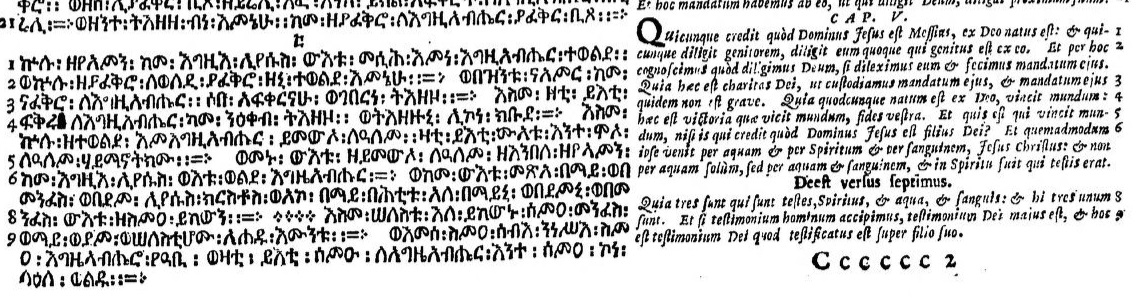 21 ወዘንተ፡ትእዛዘ፡ብነ፡እምኔሁ፡ከመ፡ዘያፈቅሮ፡ለእግዚአብሔር፡ያፍቅር፡ቢጾ፡፡
፭
1 ኵሉ፡ዘየአምን፡ ከመ፡ እግዚእ፡ኢየሱስ፡ ውእቱ፡ መሲሕ፡እምነ፡እግዚአብሔር፡ተወልደ፡፡
2 ወኵሉ፡ዘያፈቅሮ፡ለወላዲ፡ያፈቅሮ፡ዘኒ፡ተወልደ፡እምኔሁ፡፡ ወበዝንቱ፡ናአምር፡ከመ፡
3 ናፈቅሮ፡ለእግዚአብሔር፡፡ ሶበ፡ አፍቀርናሁ፡ ወገበርነ፡ ትእዛዞ፡፡ እስመ፡ ዛቲ፡ ይእቲ፡
4 ለእግዚአብሔር፡ከመ፡ ንዕቀብ፡ ትእዛዞ፡፡ ወትእዛዙኒ፡ ኢኮነ፡ ክቡደ፡፡ እስመ፡
ኵሉ፡ዘተወልደ፡ እምእግዚአብሔር፡ ይመውኦ፡ ለዓለም፡፡ ዛቲ፡ይእቲ፡ እንተ፡
5 ለዓለም፡ሃይማኖትክሙ፡፡ ወመኑ፡ ውእቱ፡ ዘይመውኦ፡ ለዓለም፡ ዘእንበለ፡ዘየአምን፡
6 ከመ፡እግዚእ፡ኢየሱስ፡ ወእቱ፡ወልደ፡እግዚአብሔር፡፡ ወከመ፡ውእቱ፡መጽአ፡በማይ፡ወበ
መንፈስ፡ወበደም፡ ኢየሱስ፡ክርስቶስ፡ወአኮ፡ በማይ፡በሕቲቱ፡አላ፡በማይኒ፡ ወበደምኒ፡ወበመ
8 ንፈስ፡ ውእቱ፡ዘስምዐ፡ይከውን፡፡ እስመ፡ሠለስቱ፡እሊ፡ይከውኑ፡ሰማዕተ፡መንፈስ፡
9 ወማይ፡ወደም፡ወሠለስቲሆሙ፡ አሐዱ፡እሙንቱ፡፡ ወእመሰ፡ስምዐ፡ሰብእ፡ንነሥእ፡ስም
ዐ፡እግዚአብሔር፡የዓቢ፡ ወዛቲ፡ ይእቲ፡ ስምዑ፡ ለእግዚአብሔር፡እንተ፡ ሰምዐ፡ በእንተ፡
ወልዱ፡፡
Et hoc mandatum habemus ab eo, ut qui diligit Deum,
C A P. V.
Quicunque credit quòd Dominus Jesus est Messias, ex Deo natus est: & qui- 1
cunque diligit genitorem, diligit eum quoque qui genitus est ex eo. Et per hoc 2
cognoscimus quòd diligimus Deum, si dileximus eum & fecimus mandatum ejus.
Quia hæc est charitas Dei, ut custodiamus mandatum ejus, & mandatum ejus 3
quidem non est grave. Quia quodcunque natum est ex Deo, vincit mundum: 4
hæc est victoria quæ vicit mundum, fides vestra. Et quis est qui vincit mun- 5
dum, nisi is qui credit quòd Dominus Jesus est filius Dei? Et quemadmodum 6
ipse venit per aquam & per Spiritum & per sanguinem, Jesus Christus: & non
per aquam solùm, sed per aquam & sanguinem, & in Spiritu fuit qui testis erat.
Deest versus septimus.
Quia tres sunt qui sunt testes, Spiritus, & aqua, & sanguis: & hi tres unum 8
sunt. Et si testimonium hominum accipimus, testimonium Dei majus est, & hoc 9
est testimonium Dei quod testificatus est super filio suo.
C c c c c c 2